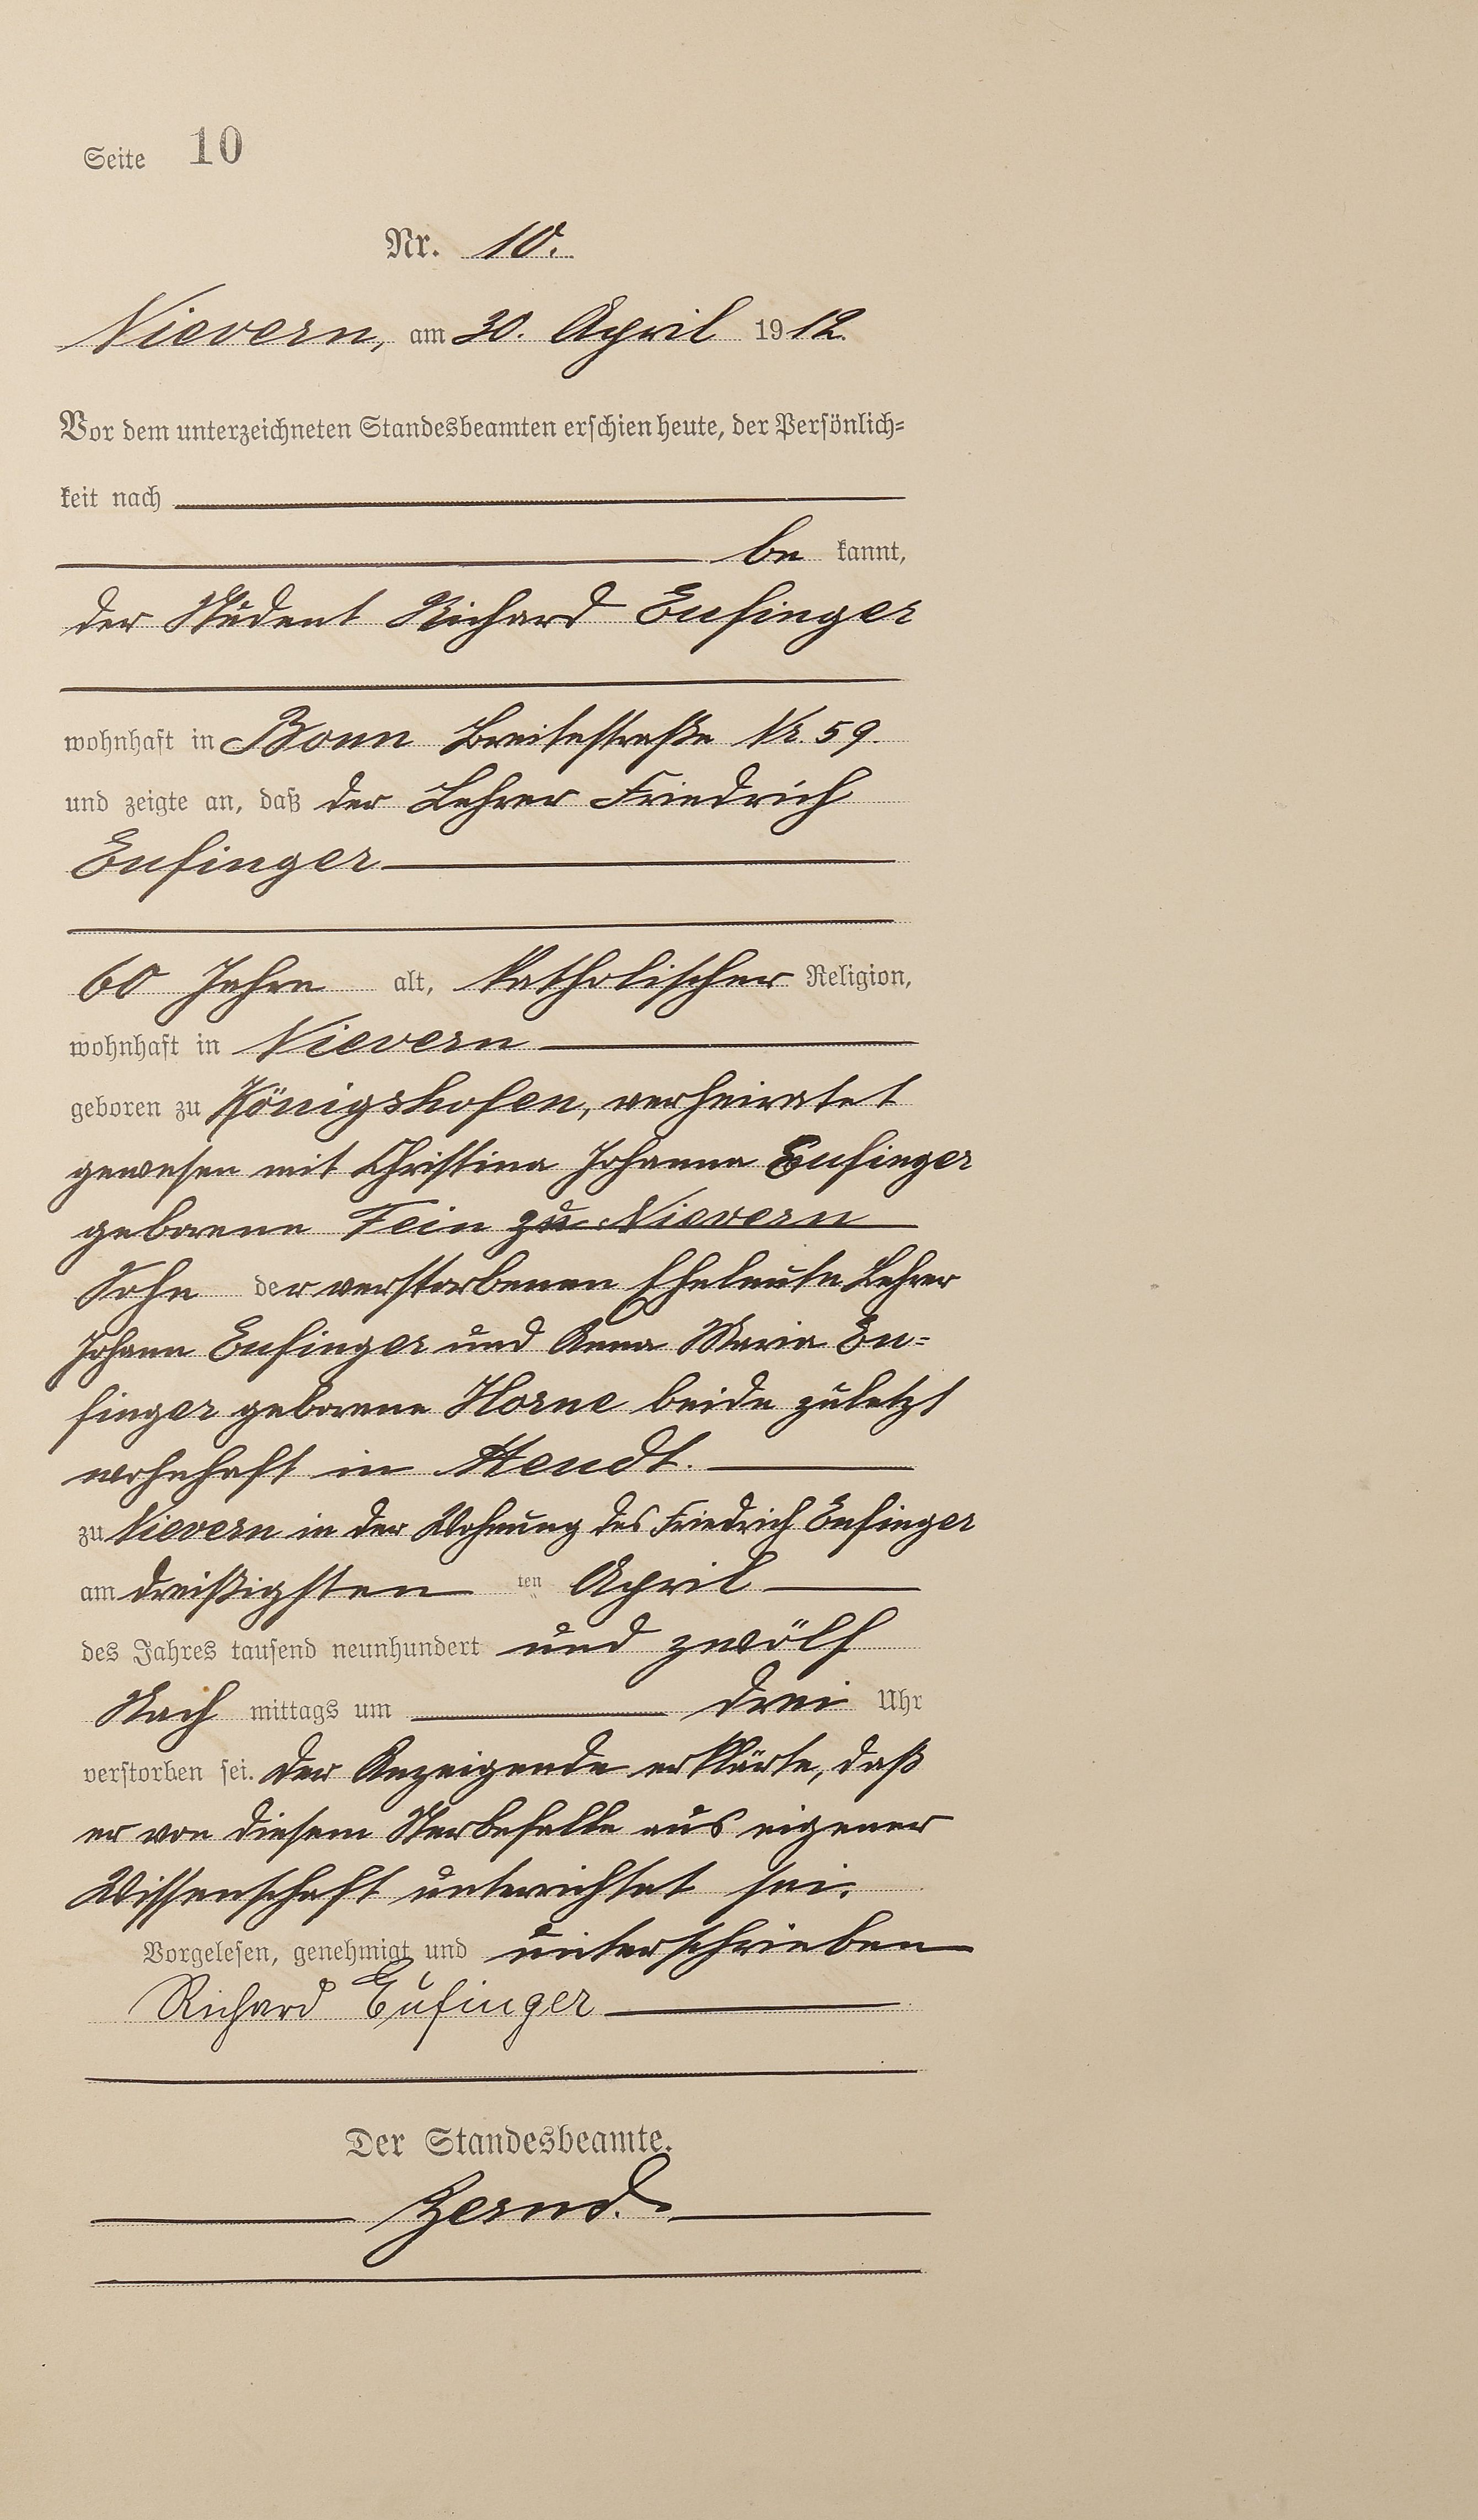 Seite 10
Nr. 10.
Nievern, am 30. April 1912.
Vor dem unterzeichneten Standesbeamten erschien heute, der Persönlich-
keit nach
be kannt,
der Student Richard Eufinger
wohnhaft in Bonn Breitestraße Nr. 59.
und zeigte an, daß der Lehrer Friedrich
Eufinger
60 Jahre alt, katholischer Religion,
wohnhaft in Nievern
geboren zu Königshofen, verheiratet
gewesen mit Christina Johanna Eufinger
geborene Fein zu Nievern
Sohn der verstorbenen Eheleute Lehrer
Johann Eufinger und Anna Maria Eu-
finger geborene Horne beide zuletzt
wohnhaft in
zu Nievern in der Wohnung des Friedrich Eufinger
am dreißigsten ten April
des Jahres tausend neunhundert und zwölf
Nach mittags um drei Uhr
verstorben sei. Der Anzeigende erklärte, daß
er von diesem Sterbefalle aus eigener
Wissenschaft unterrichtet sei.
Vorgelesen, genehmigt und unterschrieben
Richard Eufinger
Der Standesbeamte.